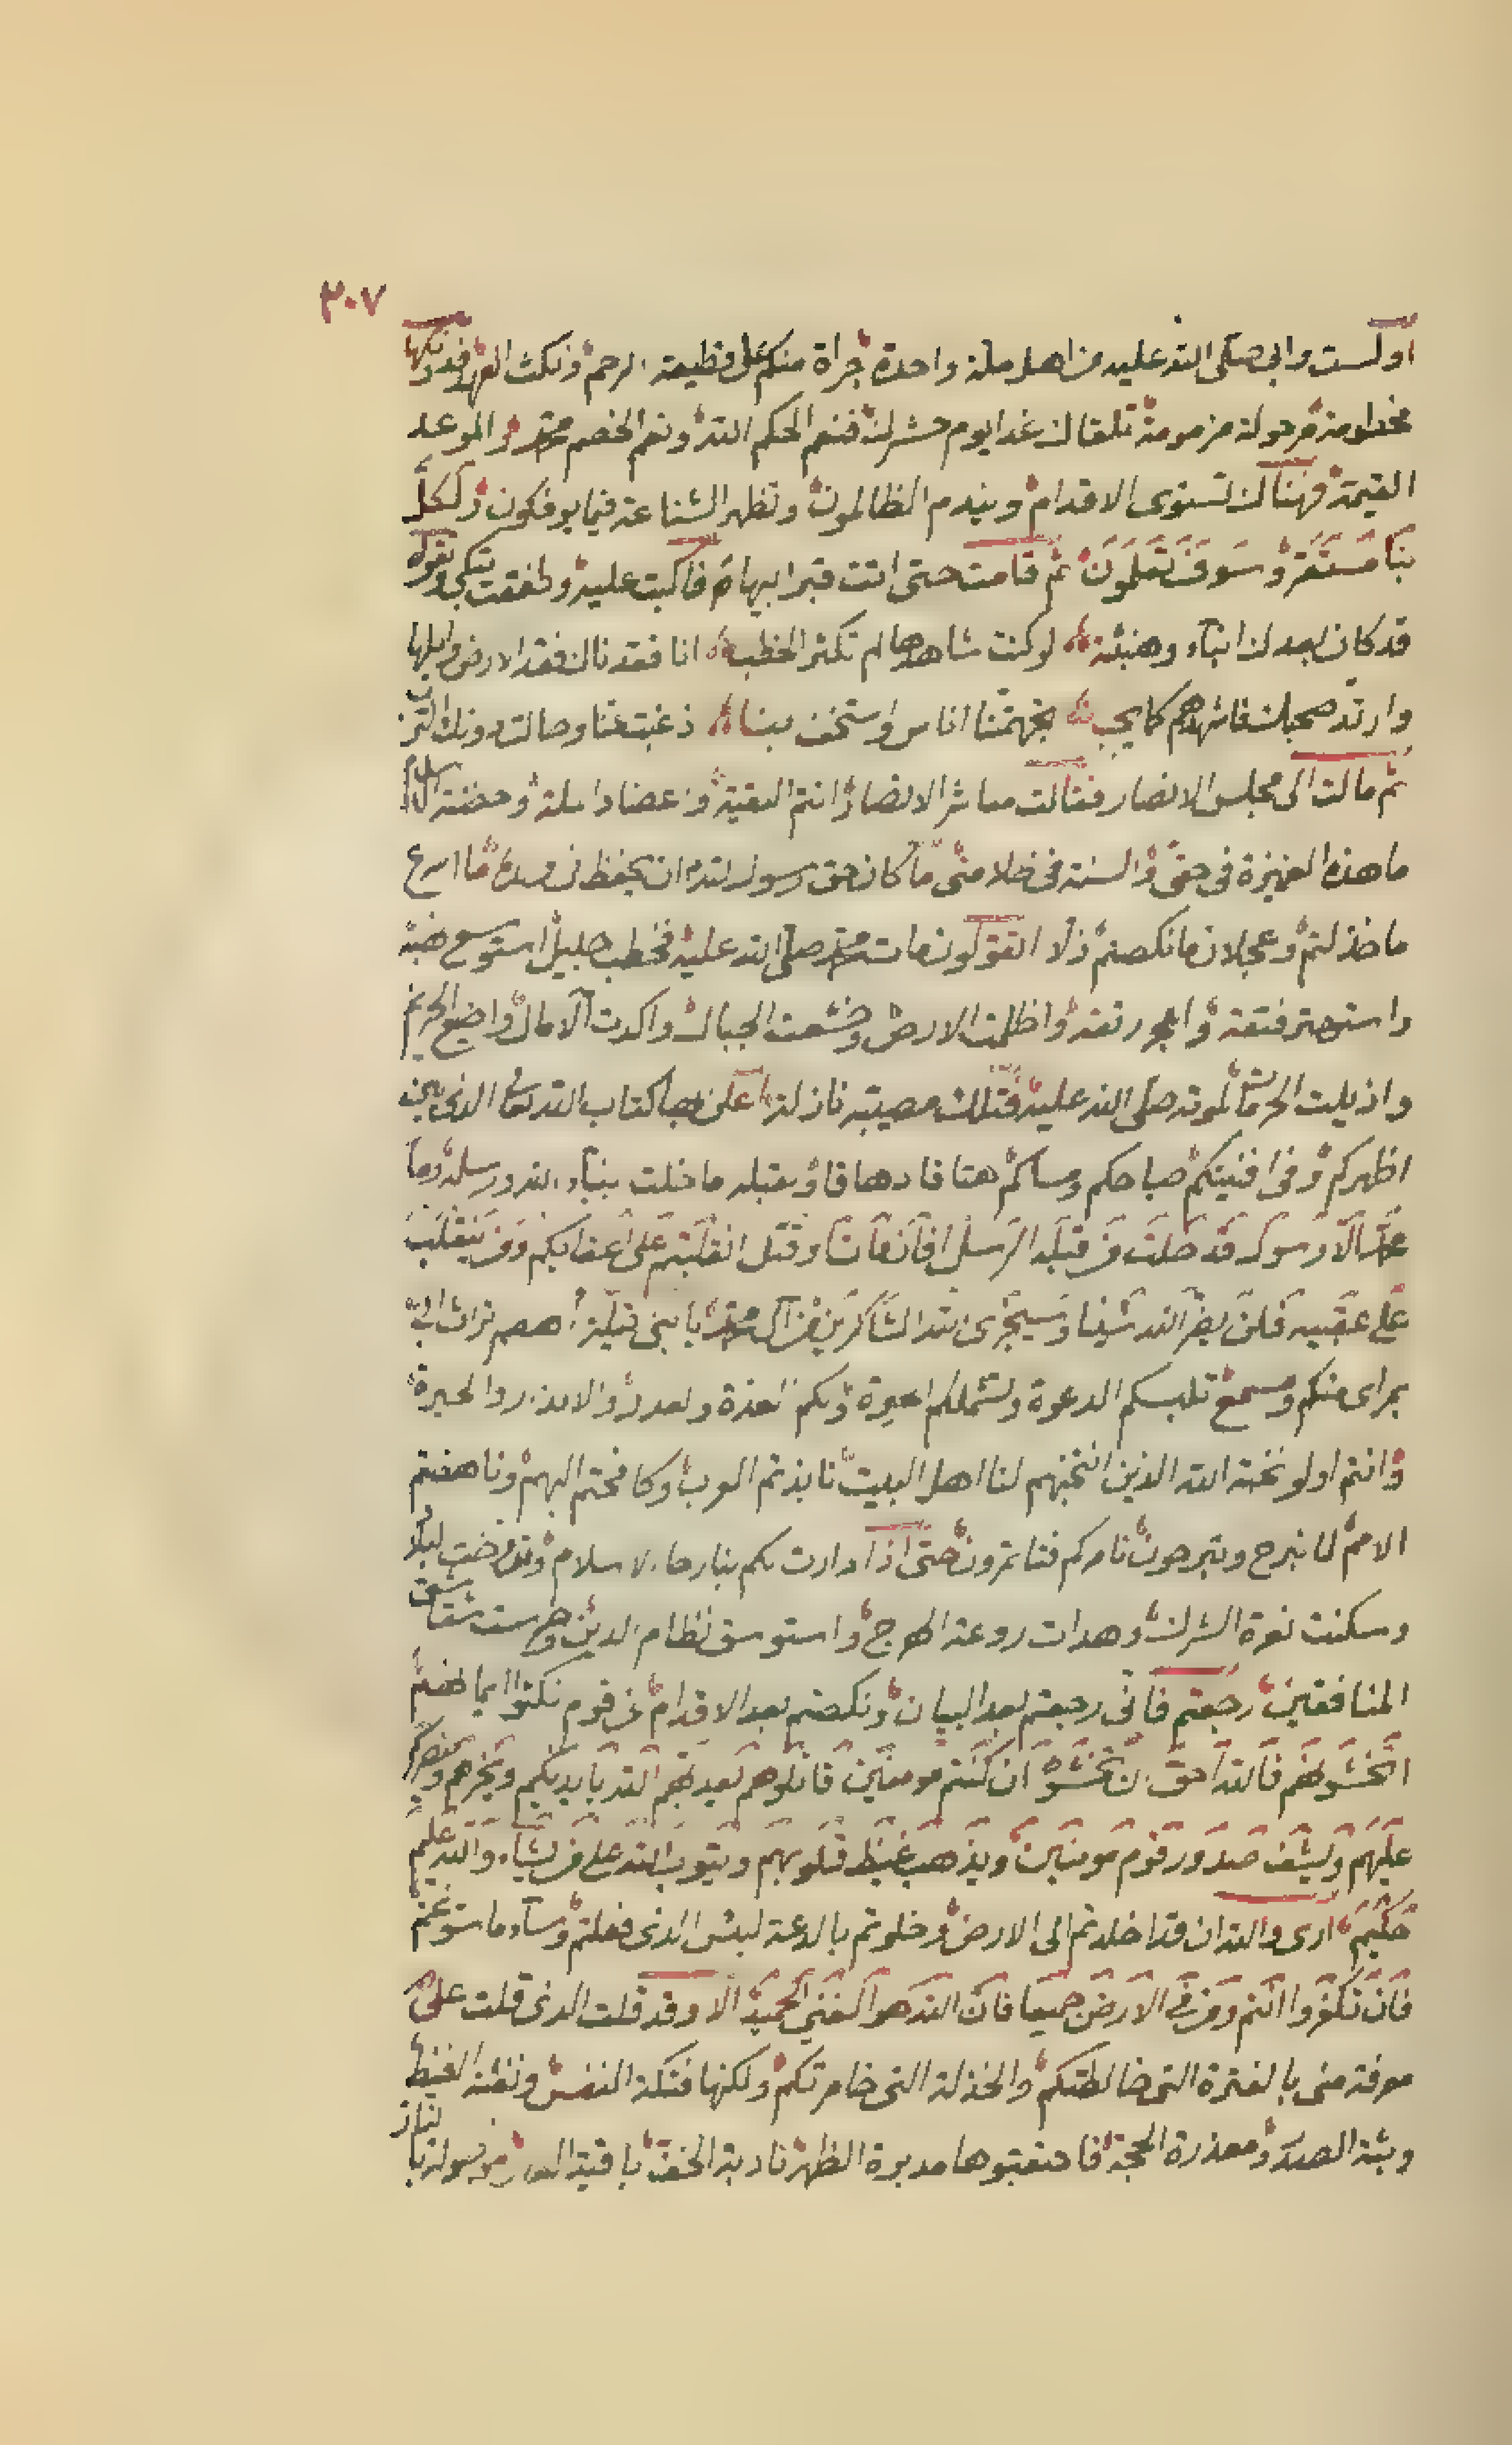 ٣٠٧
اولست وابي صلى الله عليه من اهل ملة واحدة جراة منكم على قطيعة الرحم ونكث العهد فدونكها
مخطومة مرحولة مزمومة تلقاك غدا يوم حشرك فنعم الحكم الله ونعم الخصم محمد والموعد
القيمة فهنالك تستوى الاقدام ويندم الظالمون وتظهر الشناعة فيما يوفكون ولكل
نبا مستقر وسوف تعلمون ثم قامت حتى اتت قبر ابيها ص فاكبت عليه وطفقت تبكي وتقول
قد كان بعدك انباء وهنبثة لو كنت شاهدها لم تكثر الخطب انا فقدناك فقد الارض وابلها
وارتد صحبك فاشهدهم كما يجب تجهمتنا اناس واستخف بنا اذ غبت عنا وحالت دونك الترب
ثم مالت الى مجلس الانصار فقالت معاشر الانصار انتم البقية واعضاد الملة وحضنة الاسلام
ما هذه الغميزة في حقي والسنة في ظلامتي ما كان حق رسول الله ان يحفظ في ولده ما اسرع
ما خذلتم وعجلان ما نكصتم ولا اتقولون مات محمد صلى الله عليه فخطب جليل استوسع هيه
واستوهر فتقه وانحور رتقه واظلمت الارض وخشعت الجبال واكدت الآمال واضيع الحريم
واذيلت الحرمة لموته صلى الله عليه فتلك مصيبته نازلة اعلن بها كتاب الله تعالى الذي بين
اظهركم وفي افنيتكم صباحكم ومساكم هتافا دهافا وقبله ما خلت بنبآء الله ورسله وما
محمد الا رسول قد خلت من قبله الرسل افان مات او قتل انقلبتم على اعقابكم ومن ينقلب
على عقبيه فلن يضر الله شيئا وسيجزى الله الشاكرين من آل محمد يا بني قيلة أهضم تراث ابي
بمراى منكم ومسمع تلبسكم الدعوة وتشملكم الحيرة وبكم العدة والعدد والابدار والحيرة
وانتم اولو نخبة الله الذين انتخبهم لنا اهل البيت نابذتم العرب وكافحتم البهم وناهضتم
الامم لا نبرح وتبرحون نامركم فتاتمرون حتى اذا دارت بكم بنا رحاء الاسلام وخضعت
وسكنت نعرة الشرك وهدات روعة الهرج واستوسق نظام الدين وخرست شقاشق
المنافقين رجعتم فاني رجعتم بعد البيان ونكصتم بعد الاقدام عن قوم نكثوا ايمانهم
اتخشونهم فالله احق ان تخشوه ان كنتم مومنين قاتلوهم يعذبهم الله بايديكم ويخزهم وينصركم
عليهم ويشف صدور قوم مومنين ويذهب غيظ قلوبهم ويتوب الله على من يشآء والله عليم
حكيم ارى والله ان قد اخلدتم الى الارض وخلوتم بالدعة لبئس الذي فعلتم وسآء ما سوغتم
فان تكفروا انتم ومن في الارض جميعا فان الله هو الغني الحميد الا وقد قلت الذي قلت على
معرفة مني بالفترة التي خالطتكم والخذلة التي خامرتكم ولكنها فتكة النفس ونفثة الغيظ
وبثة الصدر ومعذرة الحجة فاحتقبوها مدبرة الظهر نادبة الخف باقية العار موصولة بنار